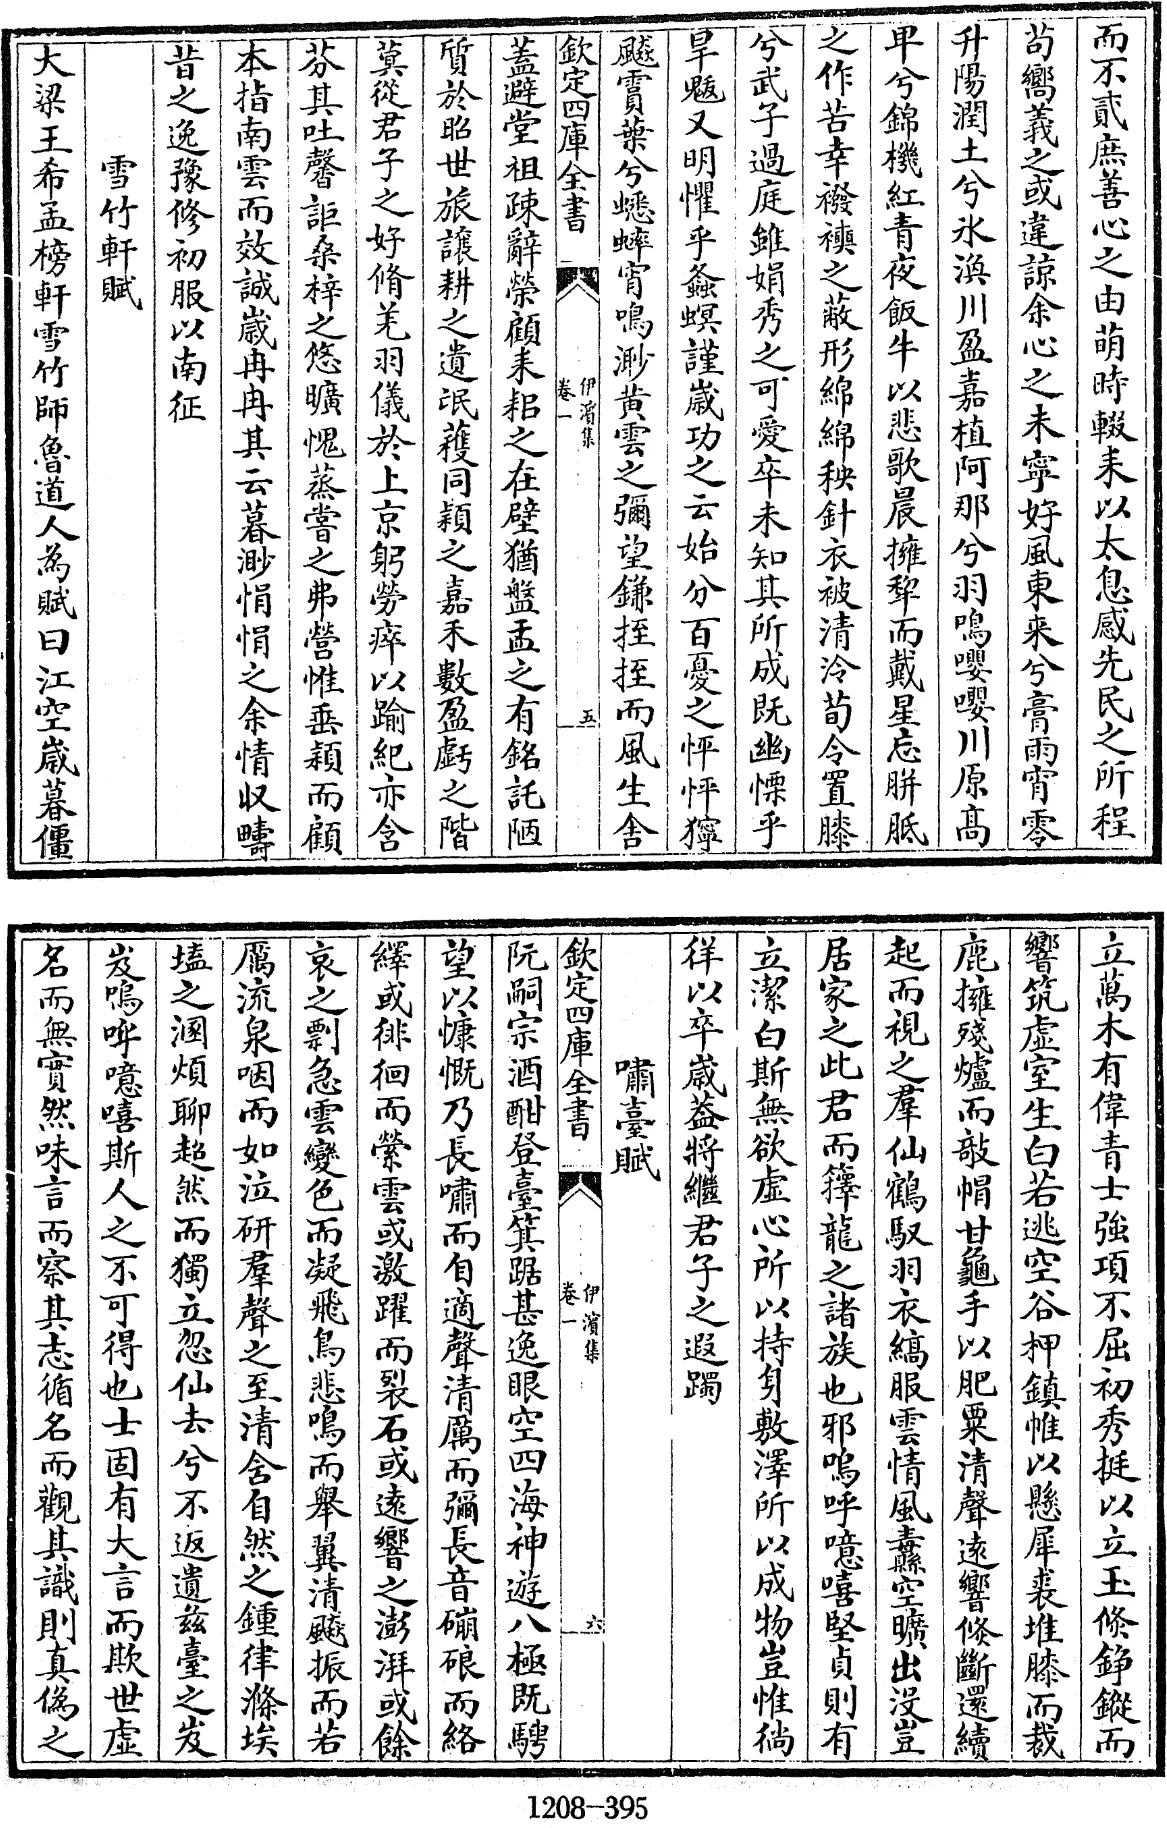 而不貳庶善心之由萌時輟耒以太息感先民之所程
茍嚮義之或違諒余心之未寧好風東来兮膏雨宵零
升陽潤土兮氷渙川盈嘉植阿那兮羽鳴嚶嚶川原髙
甲兮錦機紅青夜飯牛以悲歌晨擁犂而戴星忘胼胝
之作苦幸襏襫之蔽形綿綿秧針衣被清泠茍令置膝
兮武子過庭雖娟秀之可愛卒未知其所成既幽慄乎
旱魃又明懼乎螽螟謹嵗功之云始分百憂之怦怦獰
飈賈葉兮蟋蟀宵鳴渺黄雲之彌望鎌挃挃而風生舍
欽定四庫全書
伊濱集
卷一
五
蓋避堂祖疎辭榮顧耒耜之在壁猶盤盂之有銘託陋
質於昭世旅讓耕之遺氓蓷同穎之嘉禾數盈虧之階
蓂從君子之好脩羌羽儀於上京躬勞瘁以踰紀亦含
芬其吐馨詎桑梓之悠曠愧蒸嘗之弗營惟垂穎而顧
本指南雲而效誠嵗冉冉其云暮渺悁悁之余情収疇
昔之逸豫修初服以南征
雪竹軒賦
大梁王希孟榜軒雪竹師魯道人為賦曰江空嵗暮僵
立萬木有偉青士強項不屈初秀挺以立玉倐錚鏦而
響筑虚室生白若逃空谷柙鎮帷以懸犀裘堆膝而裁
鹿擁殘爐而敲帽甘龜手以肥粟清聲逺響倐斷還續
起而視之羣仙鶴馭羽衣縞服雲情風纛空曠出没豈
居家之此君而籜龍之諸族也邪嗚呼噫嘻堅貞則有
立潔白斯無欲虚心所以持身敷澤所以成物豈惟徜
徉以卒嵗葢將繼君子之遐躅
嘯臺賦
欽定四庫全書
伊濱集
卷一
六
阮嗣宗酒酣登臺箕踞甚逸眼空四海神遊八極既騁
望以慷慨乃長嘯而自適聲清厲而彌長音硼硠而絡
繹或徘徊而縈雲或激躍而裂石或逺響之澎湃或餘
哀之剽急雲變色而凝飛鳥悲鳴而舉翼清飈振而若
厲流泉咽而如泣研羣聲之至清舍自然之鍾律滌埃
壒之溷煩聊超然而獨立忽仙去兮不返遺兹臺之岌
岌嗚呼噫嘻斯人之不可得也士固有大言而欺世虚
名而無實然味言而察其志循名而觀其識則真偽之
1208-395